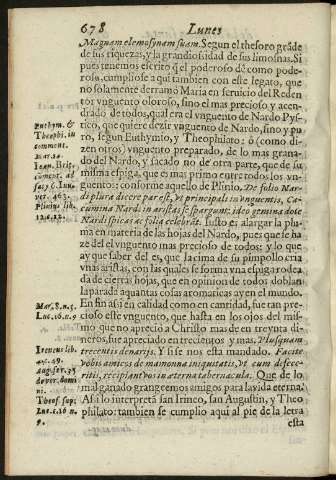 678
Lunes
Magnam elemosynam suam. Segun el thesoro grãde
de sus riquezas, y la grandiosidad de sus limosnas. Si
pues tenemos escrito q̃ el poderoso dè como pode-
roso, cumpliose aqui tambien con este legato, que
no solamente derramò Maria en seruicio del Reden
tor vnguento oloroso, sino el mas precioso y acen-
drado de todos, qual era el vnguento de Nardo Pys-
tico, que quiere dezir vnguento de Nardo, sino y pu-
ro, segun Euthymio, y Theophilato: ò (como di-
zen otros) vnguento preparado, de lo mas grana-
do del Nardo, y sacado no de otra parte, que de su
misma espiga, que es mas primo entre todos los vn-
guentos: conforme aquello de Plinio, De folio Nar-
di plura dicere par est, vt principali in vnguentis, Ca-
cumina Nardi in aristas se spargunt: ideo gemina dote
Nardi spicas ac folia celebrãt. Iusto es alargar la plu-
ma en materia de las hojas del Nardo, pues que se ha
ze dèl el vnguento mas precioso de todos: y lo que
ay que saber dèl es, que la cima de su pimpollo cria
vnas aristas, con las quales se forma vna espiga rodea
da de ciertas hojas, que en opinion de todos doblan
la parada à quantas cosas aromaticas ay en el mundo.
En fin assi en calidad como en cantidad, fue tan pre-
cioso este vnguento, que hasta en los ojos del mis-
mo que apreciò a Christo mas de en treynta di-
neros, fue apreciado en trecientos y mas. Plusquam
trecentis denarijs. Y si se nos esta mandado. Facite
vobis amicos de mammona iniquitatis, vt cum defece-
ritis, recipiant vos in æterna tabernacula. Que de lo
mal ganado grangeemos amigos para la vida eterna:
Assi lo interpretã san Irineo, san Augustin, y Theo
philato: tambien se cumplio aqui al pie de la letra
esta
Euthym. &
Theophi. in
comment.
Mar. 14.
Ioan. Bris.
comment. ad
Plinius lib.
12. c. 12.
Mar. 8. n. 5.
Luc. 16. n. 9
Ireneus lib.
4. c. 49.
August. 35
de ver. domi
ni.
Theof. sup.
Luc. c. 16 n
9.